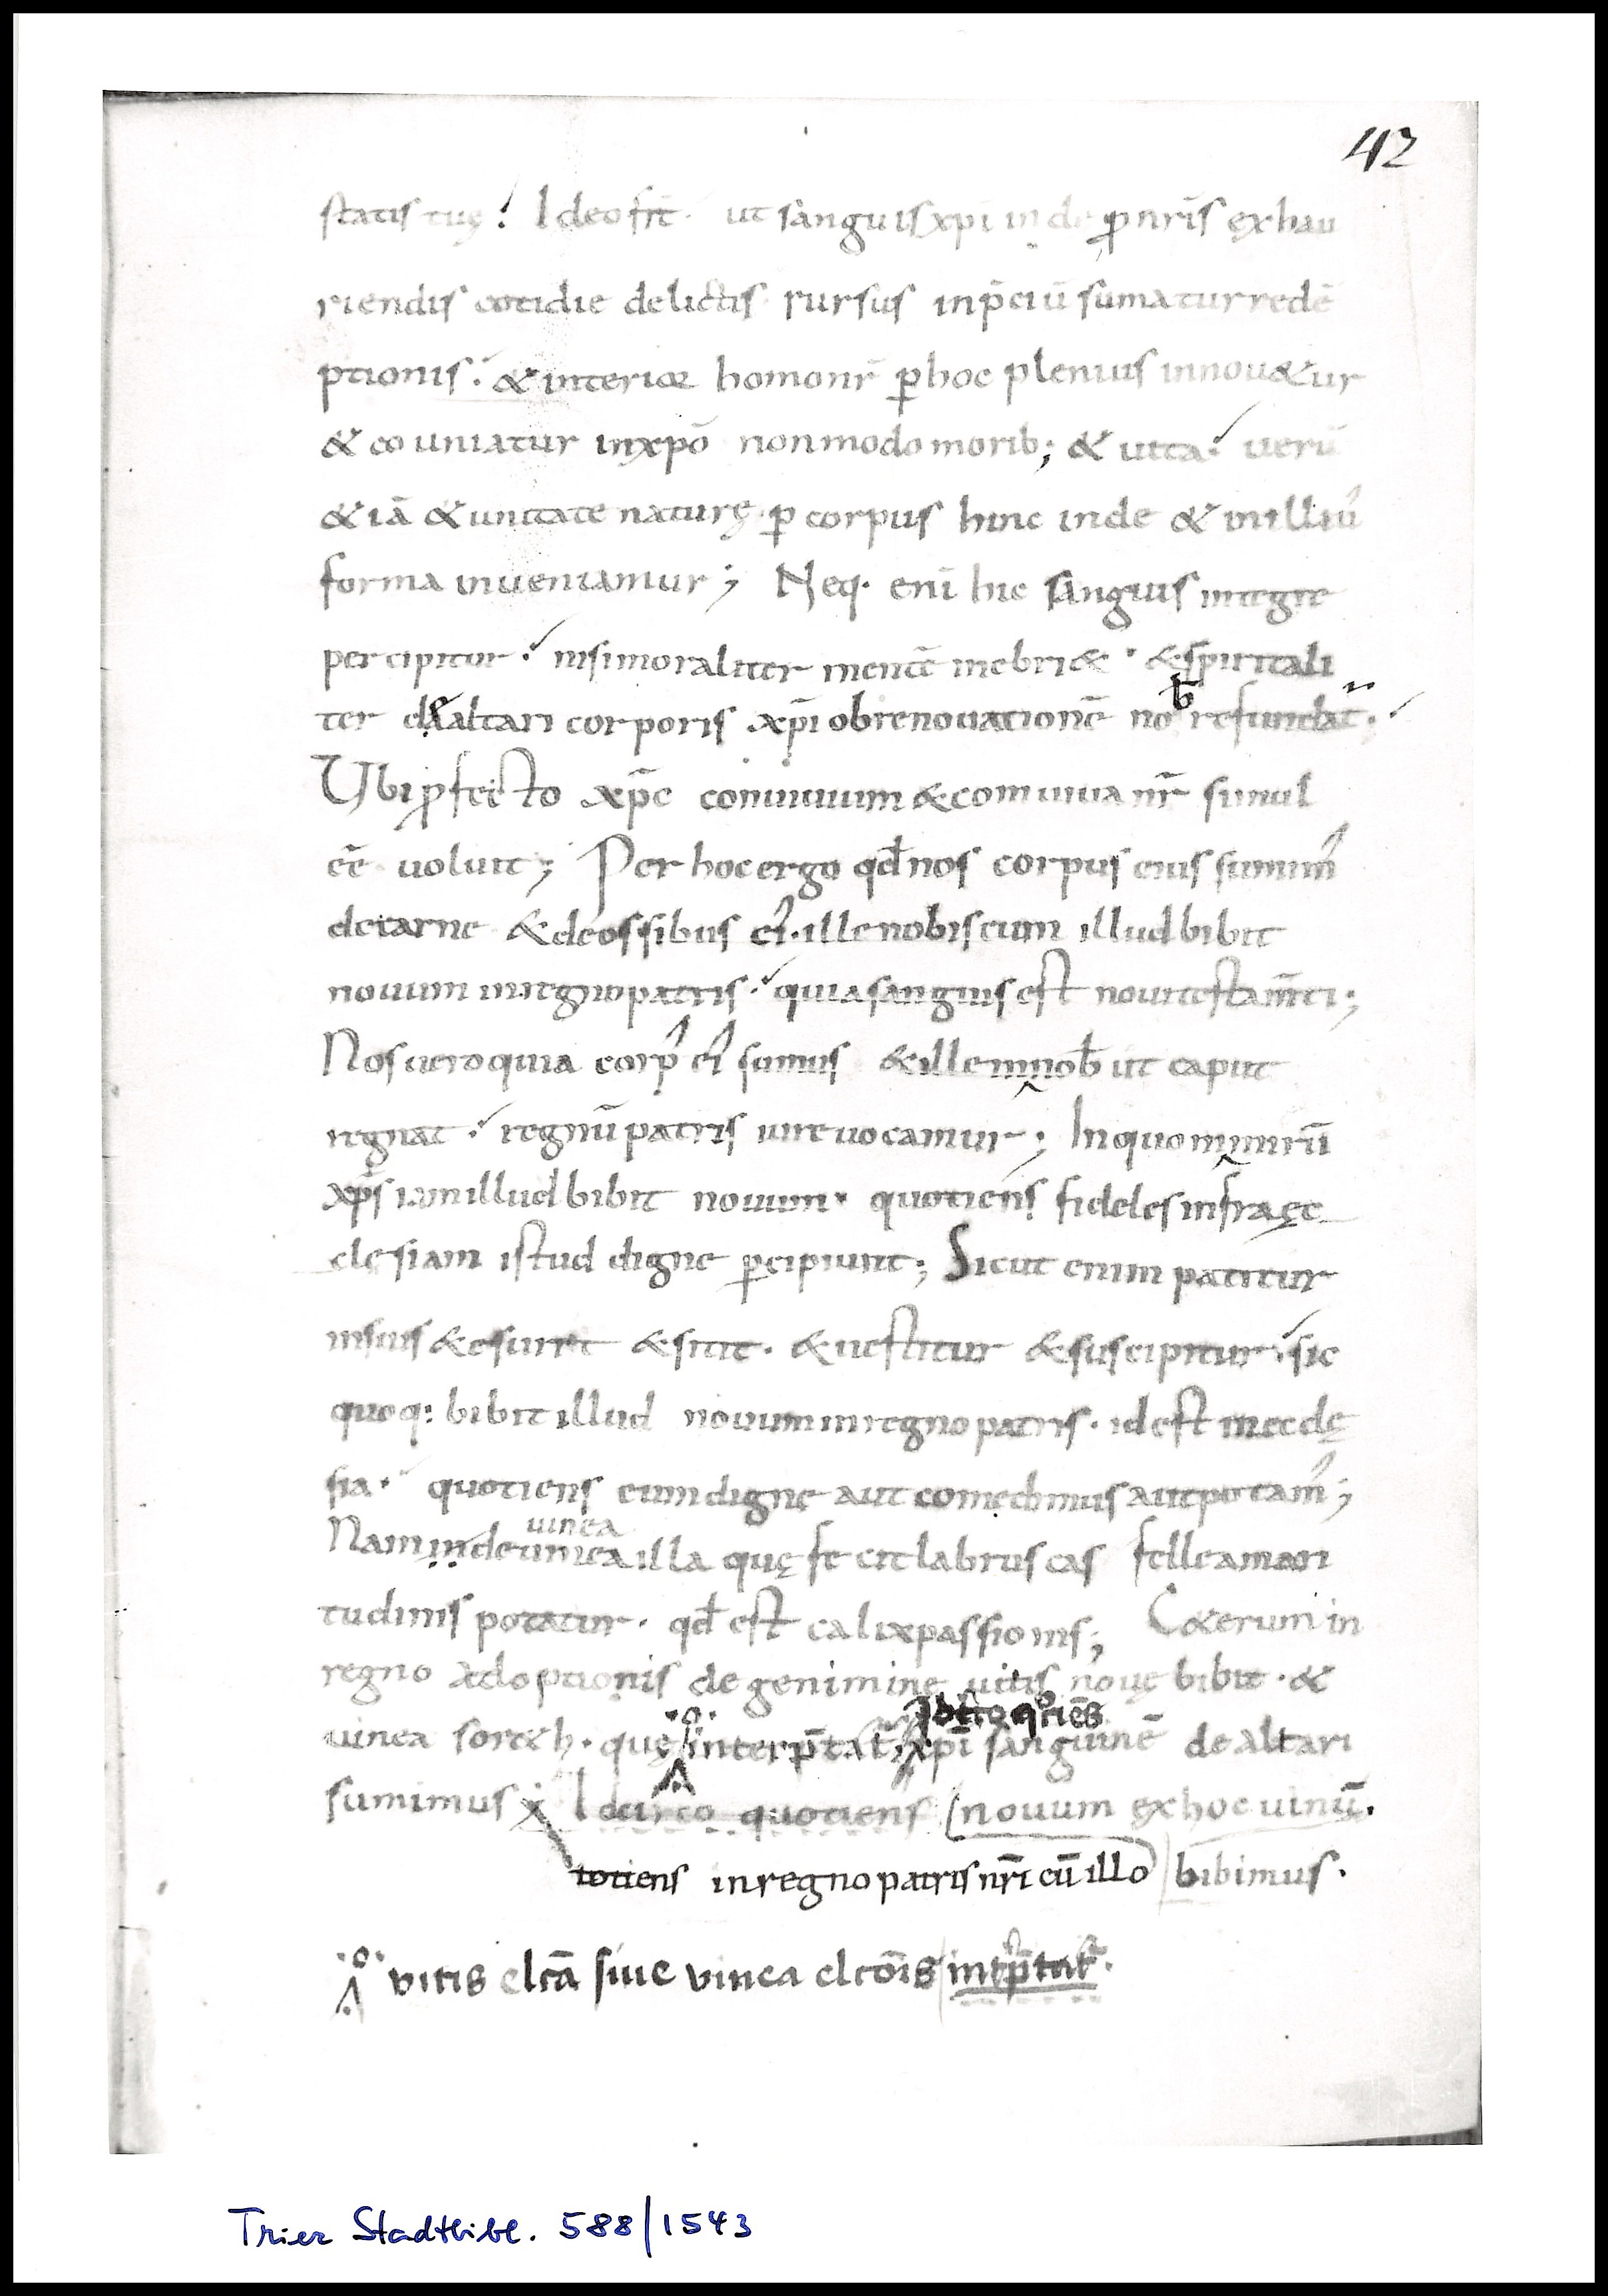 42
statis tuę. Ideo fit. ut sanguis xpi inde p nris exhau
riendis cotidie delictis rursus inp̄ciū sumatur redē
ptionis. & interior homo nr̄ p hoc plenius innou&ur
& couniatur inxpō non modo morib; & uita. uerū
&iā & unitate naturę. p corpus hinc inde & in illiuˀ
forma inueniamur; Neq. enī hic sanguis integre
percipitur. nisi moraliter mentē inebri&. & spiritali
ter de altari corporis xp̄i ob renouationē nob refundat̄.
Ubi pfecto xp̄c conuiuium & comuiua nr̄ simul
eē uoluit; Per hoc ergo qđ nos corpus eius sumumˀ
de carne & de ossibus eiˀ. ille nobiscum illud bibit
nouum in regno patris. quia sanguis est noui testam̄ti;
Nos uero quia corpˀ eiˀ sumus & ille in nob ut caput
regnat. regnū patris iure uocamur; In quo nimirū
xp̄s iam illud bibit nouum. quotiens fideles infra ęc
clesiam istud digne pcipiunt; Sicut enim patitur
in suis & esurit & sitit. & uestitur & suscipitur. sic
quoq: bibit illud nouum in regno patris. id est in ecclę
sia. quotiens eum digne aut comedimus aut potamˀ;
uinea
Nam inde uinea illa quę fecit labruscas felle amari
tudinis potatur. qđ est calix passionis; C&erum in
regno adoptionis de genimine uitis nouę bibit. &
Idcirco qºciēs
uinea sorech. quę interp̄tat̄. xpī sanguinē de altari
sumimus Idcirco quotiens nouum ex hoc uinū.
totiens in regno patris nr̄i cū illo bibimus.
vitis elcā siue vinea elcōis int̄p̄tat̄.
Trier Stadtbibl. 588/1543